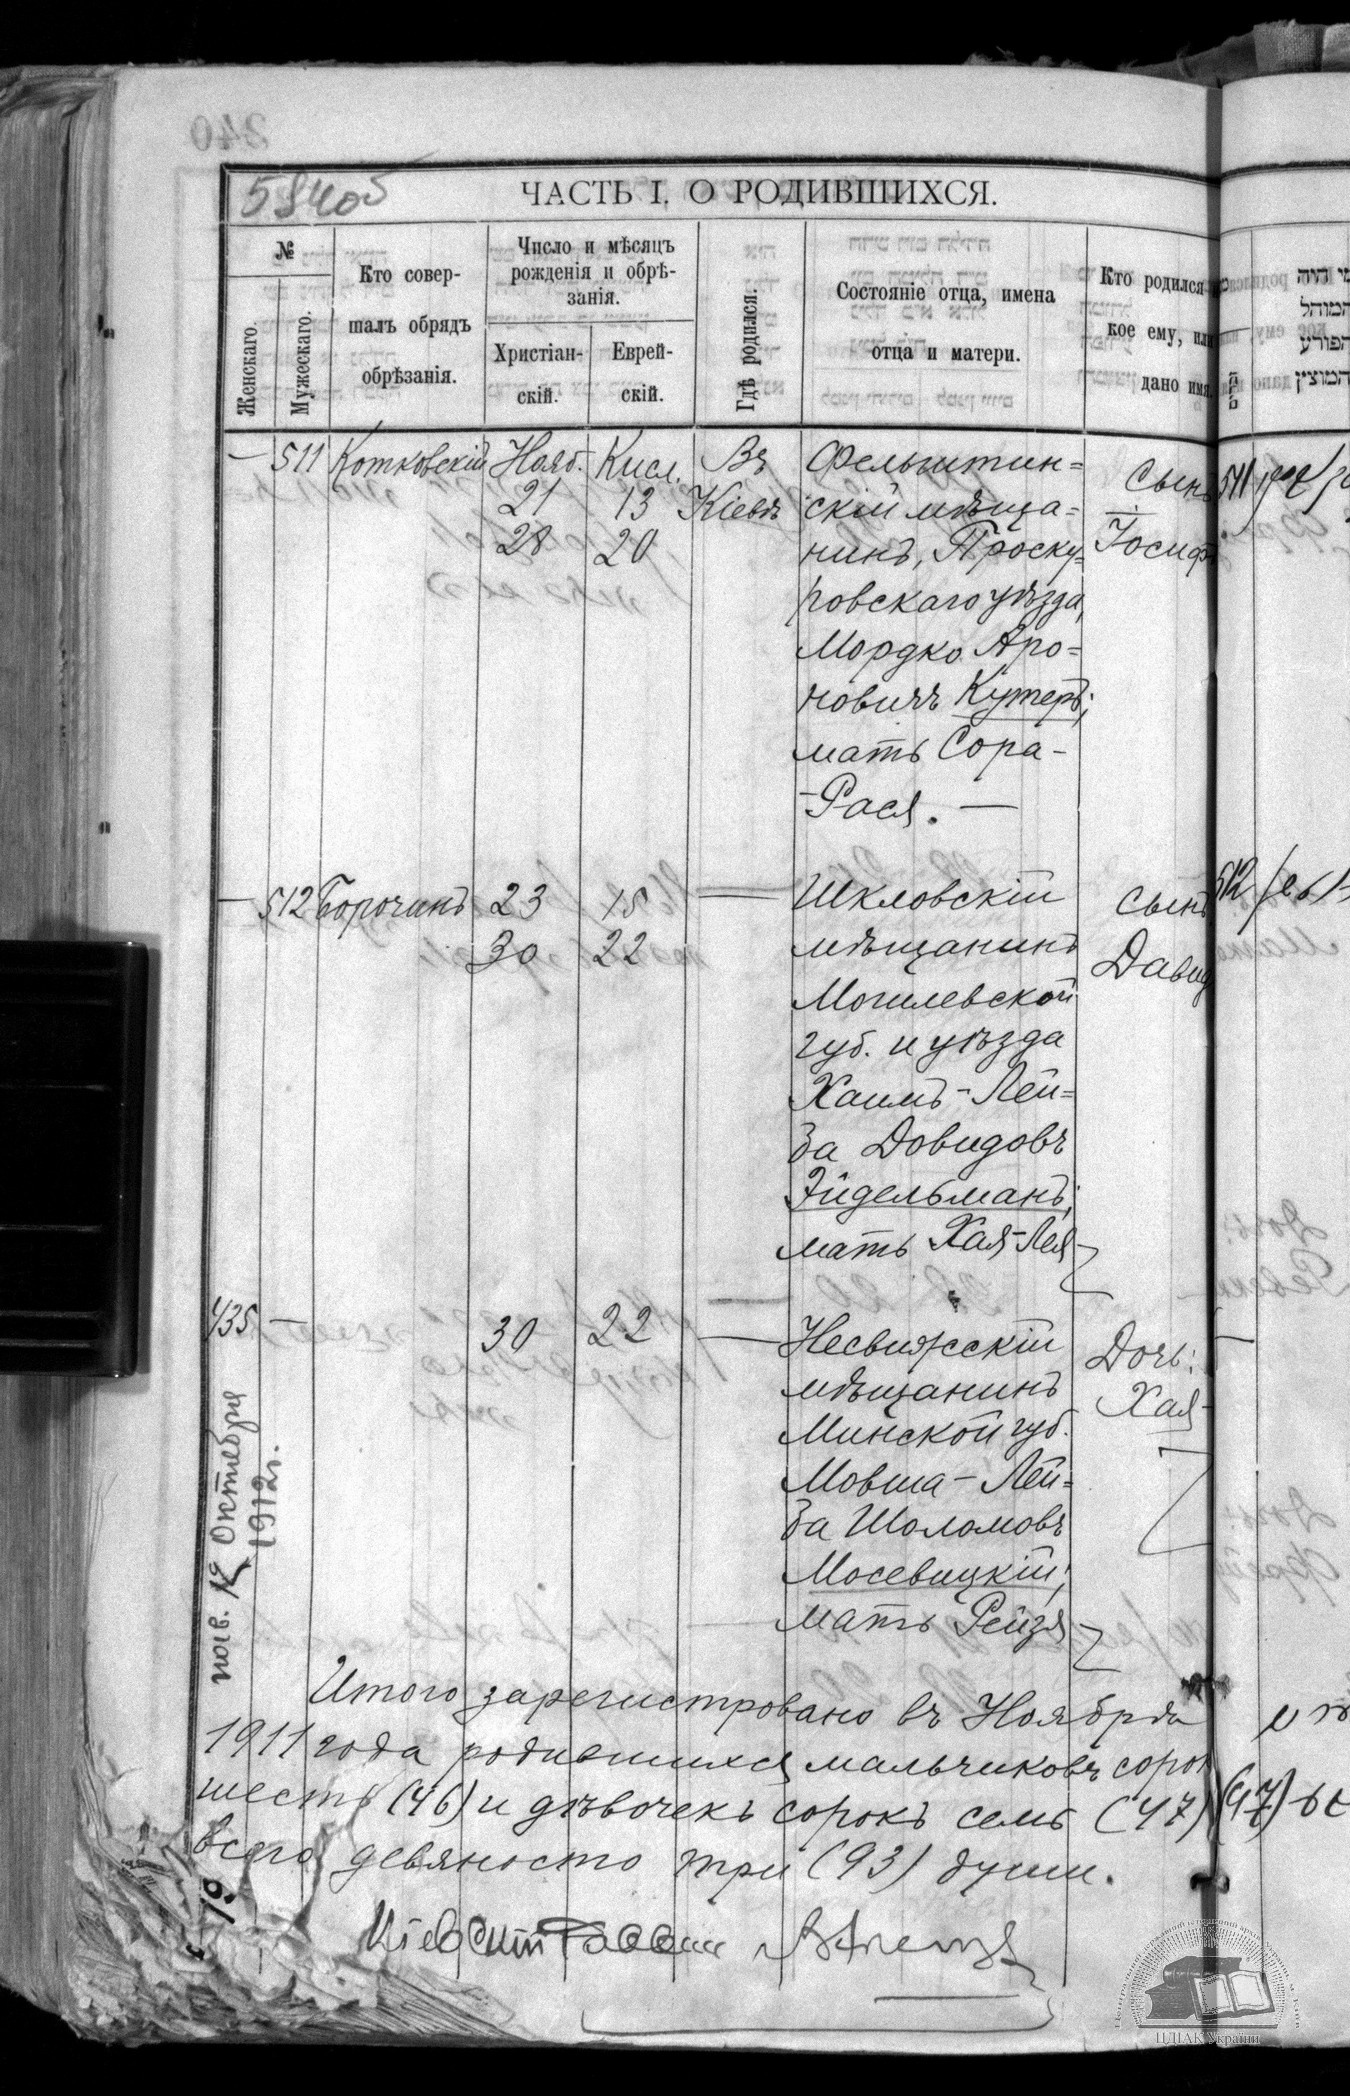 584об
ЧАСТЬ I. О РОДИВШИХСЯ.
№
Женскаго.
Мужескаго.
Кто совер-
шалъ обрядъ
обрѣзанія.
Число и мѣсяцъ
рожденія и обрѣ-
занія.
Христіан-
скій.
Еврей-
скій.
Гдѣ родился.
Состояніе отца, имена
отца и матери.
Кто родился
кое ему, или
дано имя.
— 511 Котковскій Нояб. Кисл. Въ Фельштин=
21 13 Кіевѣ скій мѣща=
28 20 нинъ, Проску=
ровскаго уѣзда,
Мордко Аро=
новичъ Кутеръ;
мать Сора-
-Рася. —
Сынъ
Іосифъ
— 512 Борочинъ 23 15 — Шкловскій
30 22 мѣщанинъ
Могилевской
губ. и уѣзда
Хаимъ-Лей=
ба Довидовъ
Эйдельманъ;
мать Хая-Лея
сынъ
Давид
435 — 30 22 — Несвижскій
мѣщанинъ
Минской губ.
Мовша-Лей=
ба Шоломовъ
Мосевицкій;
мать Рейзя
Дочь:
Хая-
Октября
1912г.
Итого зарегистровано въ Ноябрѣ
1911 года родившихся мальчиковъ сорок
шесть (46) и дѣвочекъ сорокъ семь (47)
всего девяносто три (93) души.
Кіевскій Раввин
511
512
(47)
היה
המוהל
הפורע
והמוצץ
ЦДІАК України